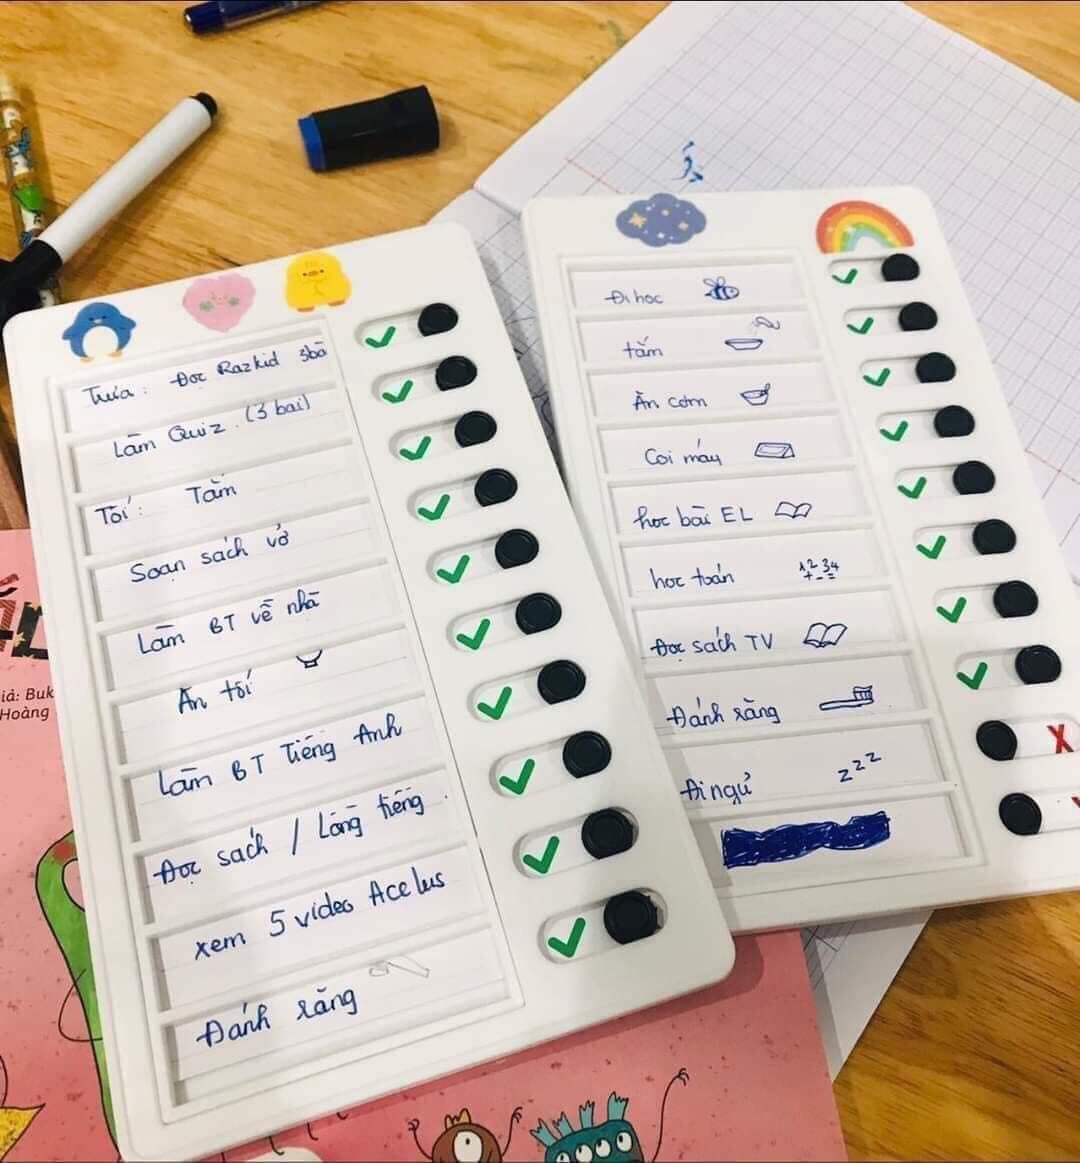 Trưa: Đọc Razkid 3bà
Làm Quiz (3 bai)
Tối: Tắm
Soạn sách vở
Làm BT về nhà
Ăn tối
Làm BT Tiếng Anh
Đọc sách / Lồng tiếng
xem 5 video Acelus
Đánh răng
Đi học
tắm
Ăn cơm
Coi máy
học bài EL
học toán
1 2 3 4
+ - =
Đọc sách TV
Đánh răng
Đi ngủ
z z z
X
iả: Buk
Hoàng